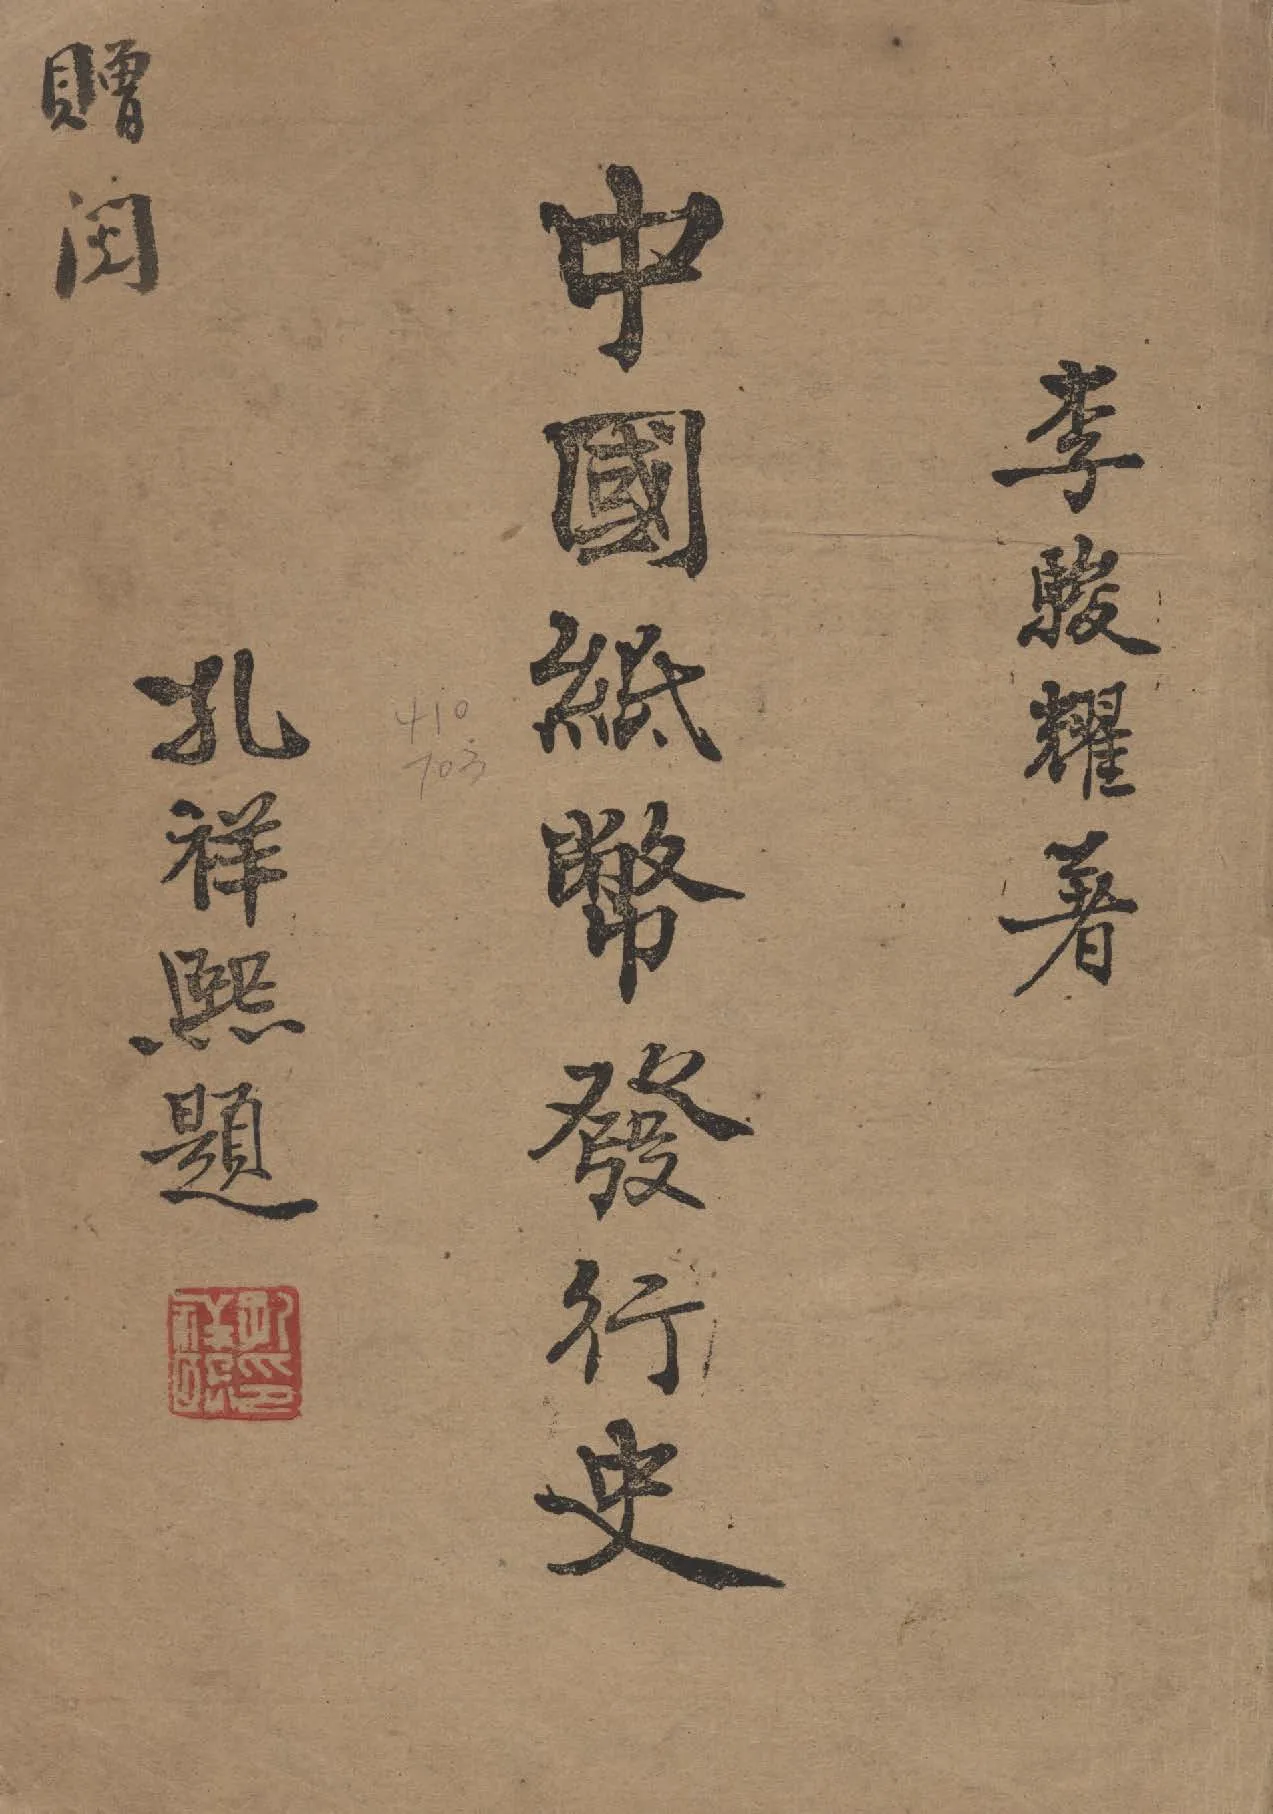 李駿耀著
中國紙幣發行史
孔祥熙題
贈閱
410
703